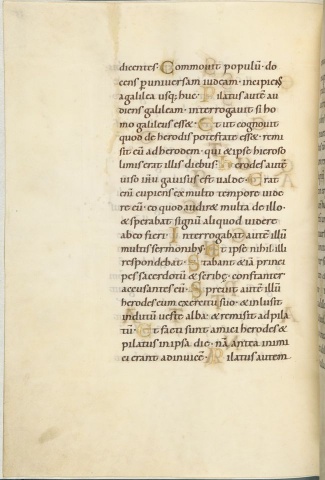 dicentes· Commouit populũ· do
cens p uniuersam iudeam· incipiens
a galilea usq; huc· Pilatus autẽ au
diens galileam· interrogauit si ho
mo galileus esset· Et ut cognouit
quod de herodis potestate esset· remi
sit eũ ad herodem· qui & ipse hieroso
limis erat illis diebus· Herodes autẽ
uiso ihũ gauisus est ualde· Erat
enĩ cupiens ex multo tempore uide
re eũ· eo quod audiret multa de illo·
& sperabat signũ aliquod uidere
ab eo fieri· Interrogabat autẽ illũ
multis sermonibꝰ· Et ipse nihil illi
respondebat· Stabant & iã princi
pes sacerdotũ & scribę· constanter
accusantes eũ· Spreuit autẽ illũ
herodes cum exercitu suo· & inlusit
indutũ ueste alba· & remisit ad pila
tũ· Et facti sunt amici herodes &
pilatus in ipsa die· nã antea inimi
ci erant ad inuicẽ· Pilatus autem